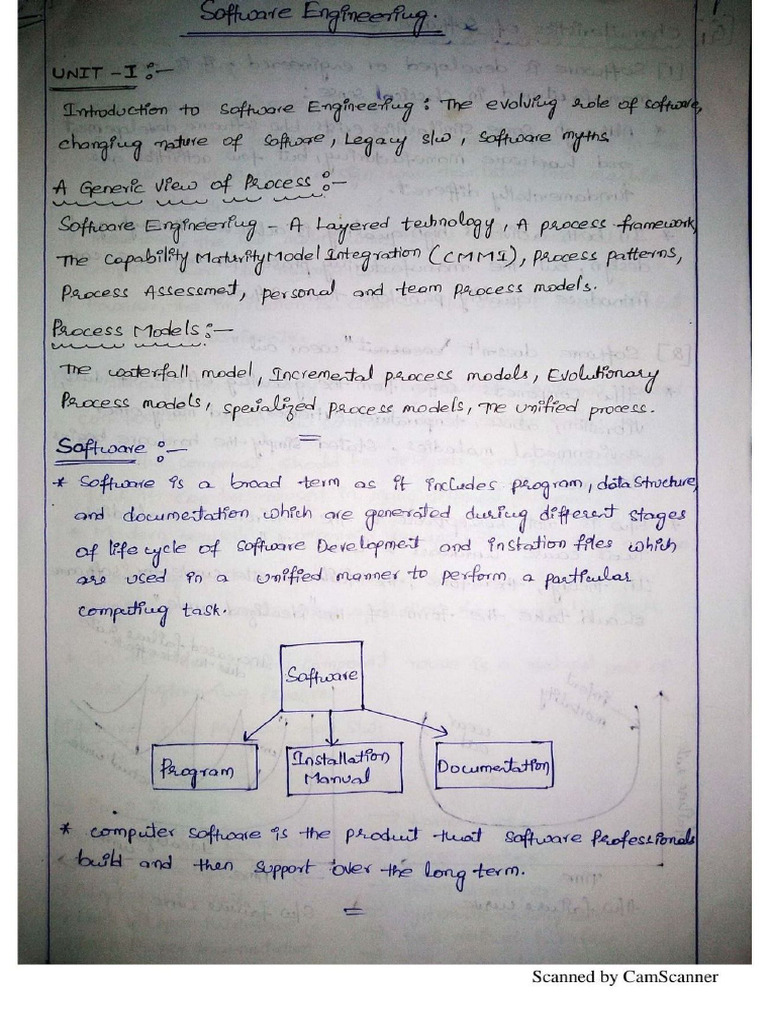 Software Engineering.
1
UNIT - I :-
Introduction to Software Engineering: The evolving role of software,
changing nature of software, Legacy s/w, Software myths.
A Generic View of Process :-
Software Engineering - A Layered technology, A process framework,
The Capability Maturity Model Integration (CMMI), Process patterns,
Process Assessmet, personal and team process models.
Process Models :-
The waterfall model, Incremental process models, Evolutionary
Process models, specialized process models, The unified process.
Software :-
* Software is a broad term as it includes program, data structure,
and documentation which are generated during different stages
of life cycle of Software Development and instation files which
are used in a unified manner to perform a particular
computing task.
Software
Program
Installation
Manual
Documentation
* computer software is the product that software professionals
build and then support over the long term.
Scanned by CamScanner